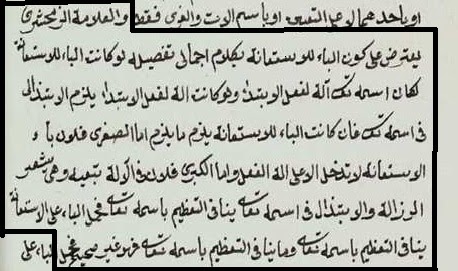 او باحد هما لا على التعيين او باسم الات والعزى فقط والعلامة الزمخشرى
يعترض على كون الباء للاستعانة بكلام اجمالى تفصيله لو كانت الباء للاستعانة
لكان اسمه تك آلة لفعل الابتداء ولو كانت الة لفعل الابتداء يلزم الابتذال
فى اسمه تك فان كانت الباء للاستعانة يلزم ما يلزم اما الصغرى فلان باء
الاستعانة لا تدخل الا على الة الفعل واما الكبرى فلان فى الآلة تبعية وهى يشعر
والابتذال فى اسمه تعالى ينافى التعظيم باسمه تعالى فجعل الباء على الاستعانة
ينافى التعظيم باسمه تعالى وما ينافى التعظيم باسمه تعالى فهو غير صحيح فجعل الباء على